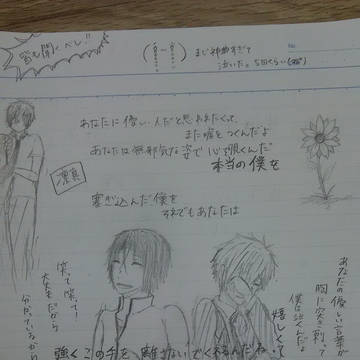 皆も聞くべし!!
まじ神曲すぎて
泣いた。5回くらい
No.
あなたに優しい人だと思われたくて
また嘘をつくんだよ
あなたは無邪気な姿で 心で覗くんだ
本当の僕を
凛真
塞ぎ込んだ僕を
それでもあなたは
笑って笑って!
大丈夫だから
分かっているから
あなたの優しい言葉が
胸に突き刺さって
僕は泣くんだよ
嬉しくて
強くこの手を離さないでくれるんだね